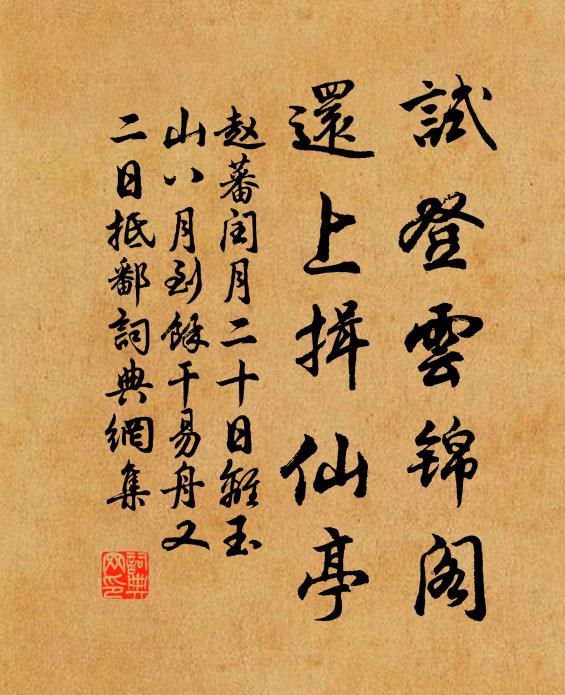 試登雲锦阁
還上揖仙亭
赵蕃闰月二十日離玉
山八月到餘干易舟又
二日抵鄱詞典網集
詞典
网印